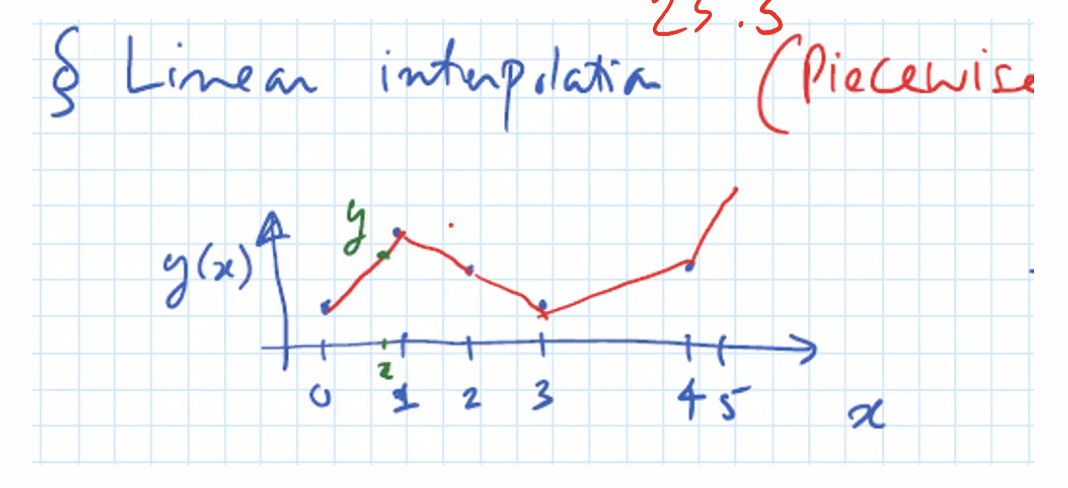 25.5
§ Linear interpolation (Piecewise
y
y(x)
x
0 1 2 3 4 5
x